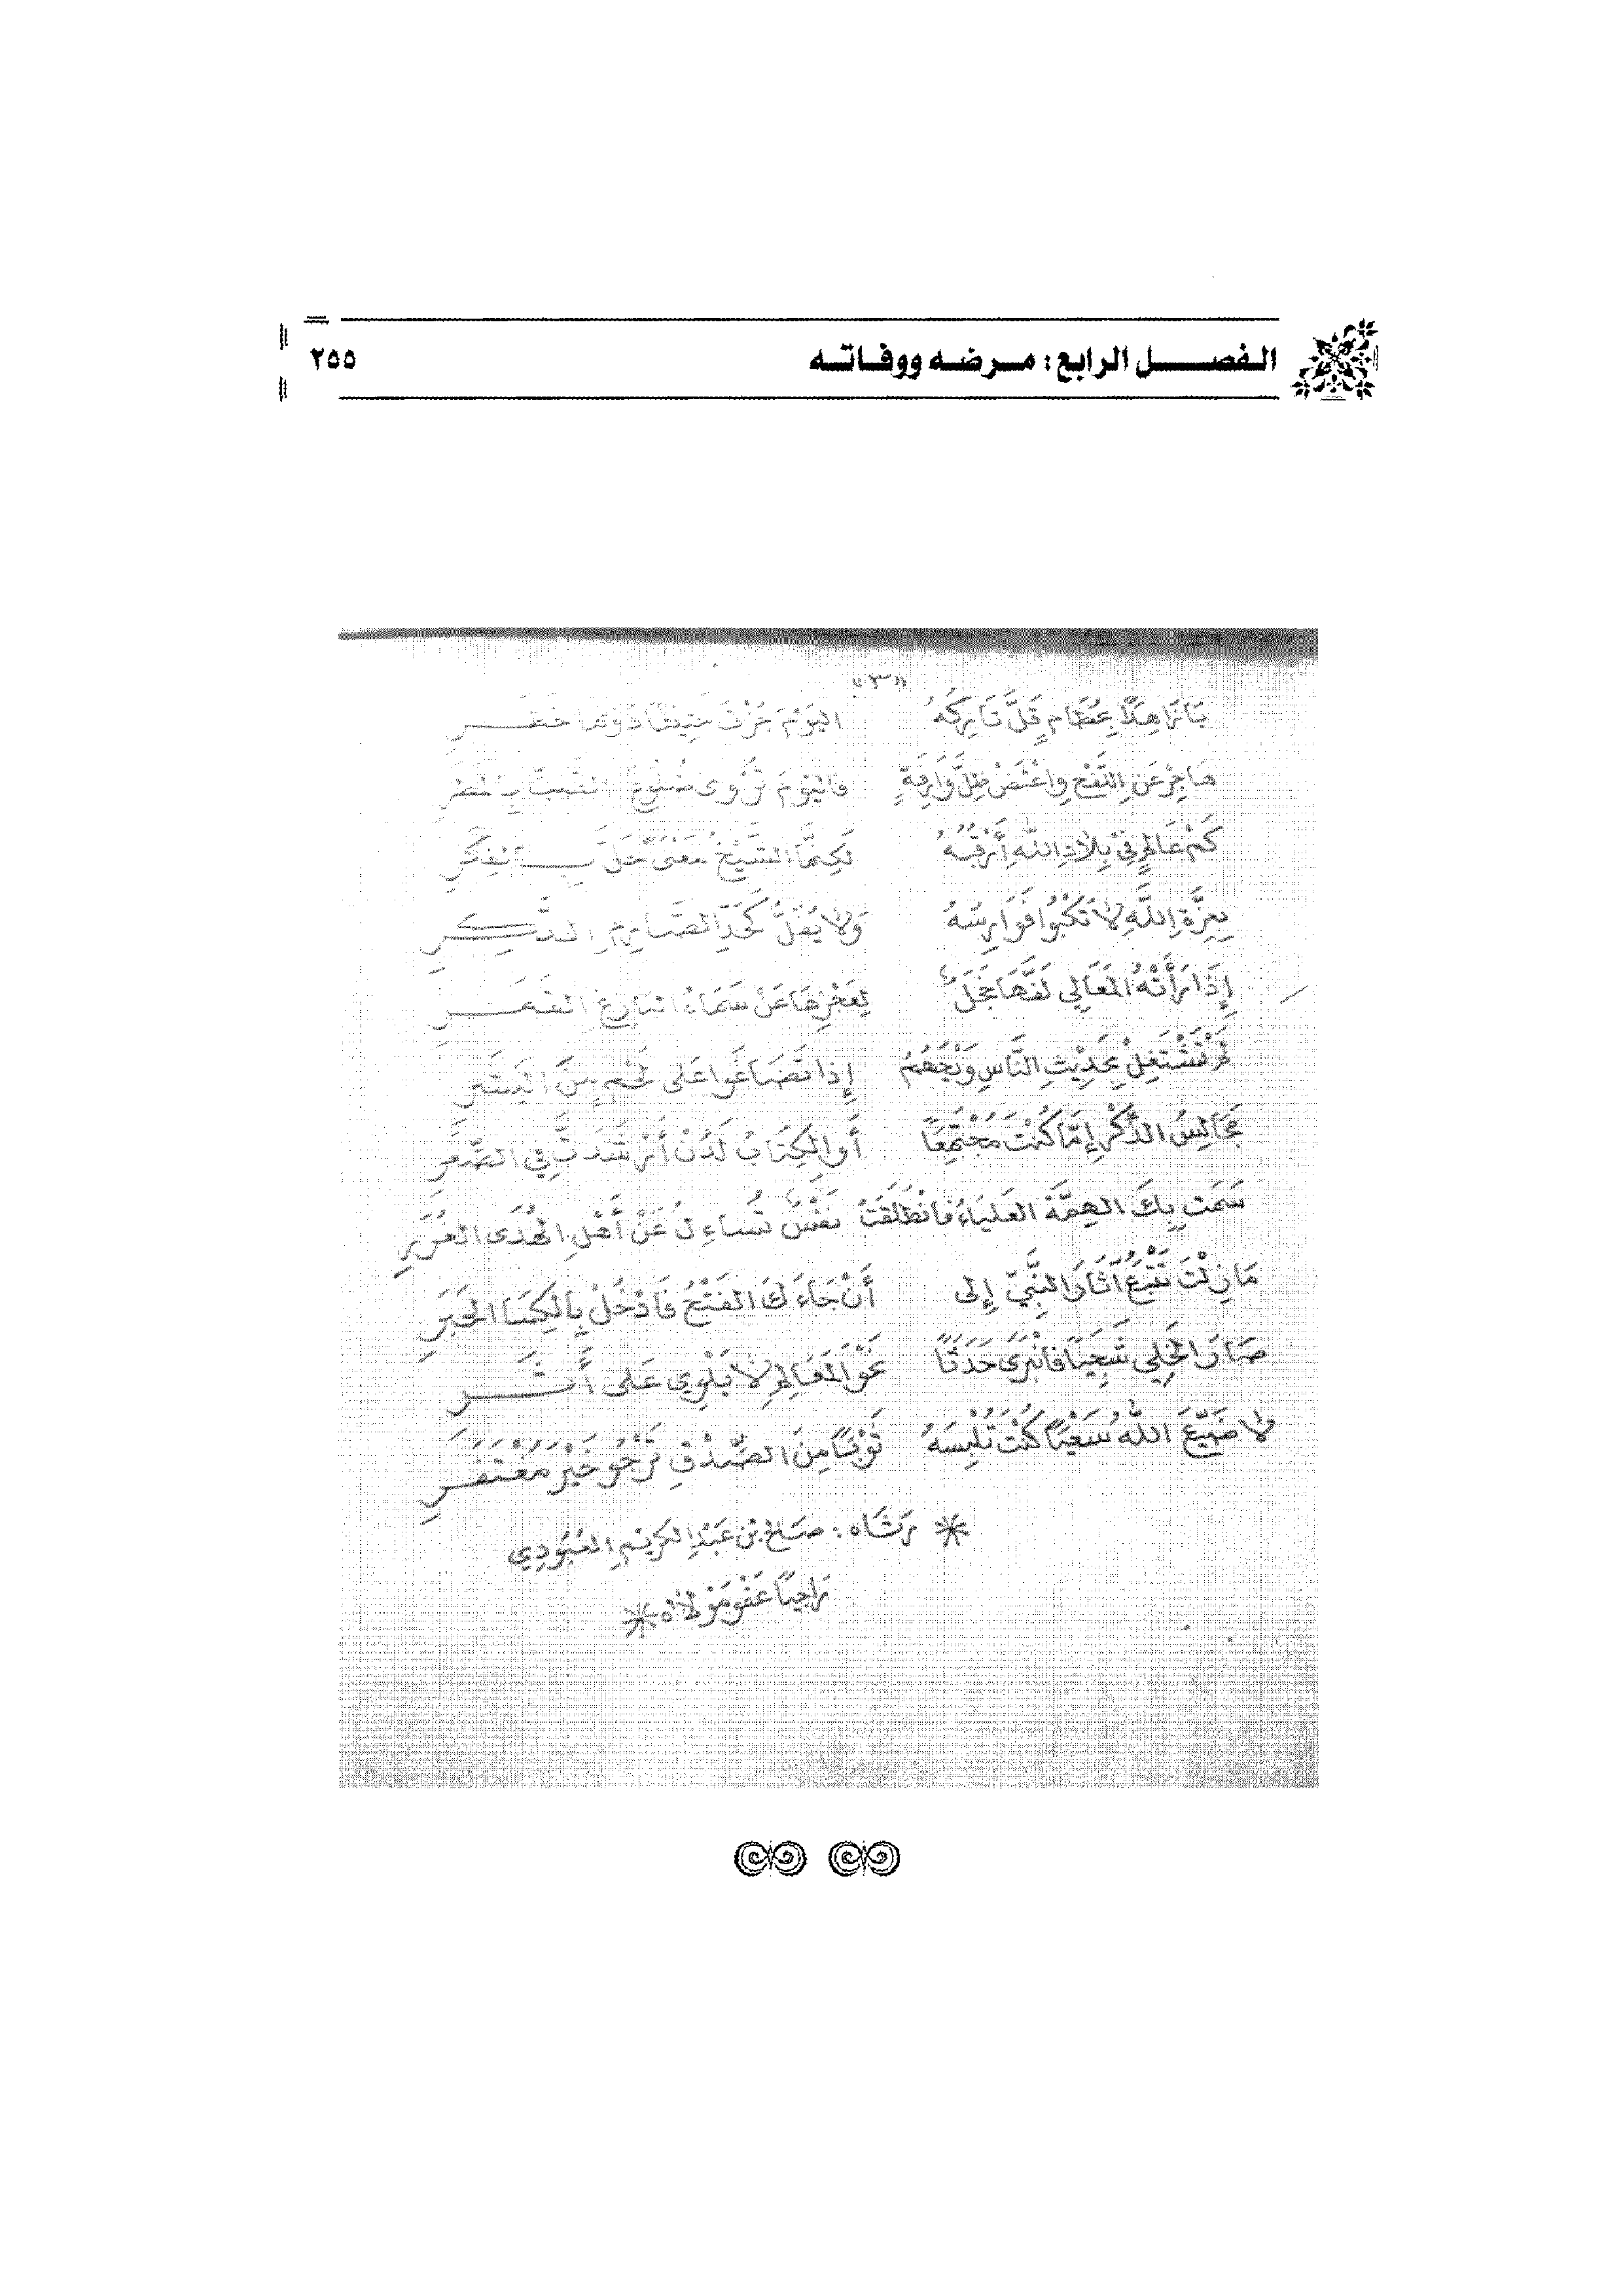 الفصل الرابع: مرضه ووفاته ٢٥٥
«٣»
يَا زَاهِدًا بِحُطَامٍ قَلَّ تَارِكُهُ اليَوْمَ جُزْتَ
هَاجِرْ عَنِ وَارِفَةٍ فاليَوْمَ تُرْوى
كَمْ عَالِمٍ في بِلادِ اللهِ أَرْقُبُهُ لَكِنَّمَا الشَّيْخُ مَعْنَىً حَلَّ بِـالفِكَرِ
بِعِزَّةِ اللَّهِ لاَ تَكْبُوا فَوَارِسُهُ وَلاَ يُفَلُّ كَحَدِّ الصَّارِمِ الذَّكَرِ
إِذَا رَأَتْهُ المَعَالِي لَفَّهَا خَجَلٌ لِعَجْزِهَا عَنْ سَمَاءِ
لَمْ تَشْتَغِلْ بِحَدِيْثِ النَّاسِ وَيْحَهُمُ إِذا عَلى لَحْمٍ مِنَ البَشَرِ
مَجَالِسُ الذِّكْرِ إِمَّا كُنْتَ مُجْتَمِعًا أَو الكِتَابُ لَدُنْ في
سَمَتْ بِكَ الهِمَّةُ العَلياءُ فانْطَلَقَتْ نَفْسٌ تُسَاءِلُ عَنْ أَهْلِ الهُدَى الغُرَرِ
مَا زِلْتَ تَتْبَعُ آثَارَ النَّبِيِّ إِلى أَنْ جَاءَكَ الفَتْحُ فَادْخُلْ
صَارَ الخَلِي شَجِيًا فانْبَرَى حَدَثًا نَحْوَ المَعَالِمِ لاَ يَلْوِي عَلى أَثَرِ
لا ضَيَّعَ اللهُ سَعْيًا كُنْتَ تُلْبِسَهُ ثَوْبًا مِنَ الصِّدْقِ تَرْجُو خَيْرَ مُغْتَفَرِ
* رَثَاه: صَالح بْن عَبْدِ الكَرِيْمِ العَبُّودِي
رَاجِيًا عَفْوَ مَوْلاَه *